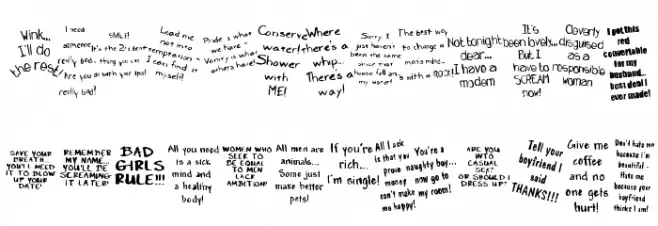 Wink...
I'll do
the rest!
I need
someone
really bad..
Are you
really bad?
SMILE!
It's the 2nd best
thing you can
do with your lips!
Lead me
not into
temptation...
I can find it
myself!
Pride is what
we have..
Vanity is what
others have
Conserve
water!
Shower
with
ME!
Where
there's a
whip...
There's a
way!
Sorry I
just haven't
been the same
since that
house fell on
my sister!
The best way
to change a
man's mind...
is with a
Not tonight
dear...
I have a
modem
It's
been lovely...
But I
have to
SCREAM
now!
Cleverly
disguised
as a
responsible
woman
I got this
red
convertable
for my
husband...
best deal I
ever made!
SAVE YOUR
BREATH...
YOU'LL NEED
IT TO BLOW
UP YOUR
DATE!
REMEMBER
MY NAME...
YOU'LL BE
SCREAMING
IT LATER!
BAD
GIRLS
RULE!!!
All you need
is a sick
mind and
a healthy
body!
WOMEN WHO
SEEK TO
BE EQUAL
TO MEN
LACK
AMBITION!
All men are
animals...
Some just
make better
pets!
If you're
rich...
I'm single!
All I ask
is that you
prove
money
can't make
me happy!
You're a
naughty boy...
now go to
my room!
ARE YOU
INTO
CASUAL
SEX?
OR SHOULD I
DRESS UP?
Tell your
boyfriend I
said
THANKS!!!
Give me
coffee
and no
one gets
hurt!
Don't hate me
because I'm
beautiful...
Hate me
because your
boyfriend
thinks I am!